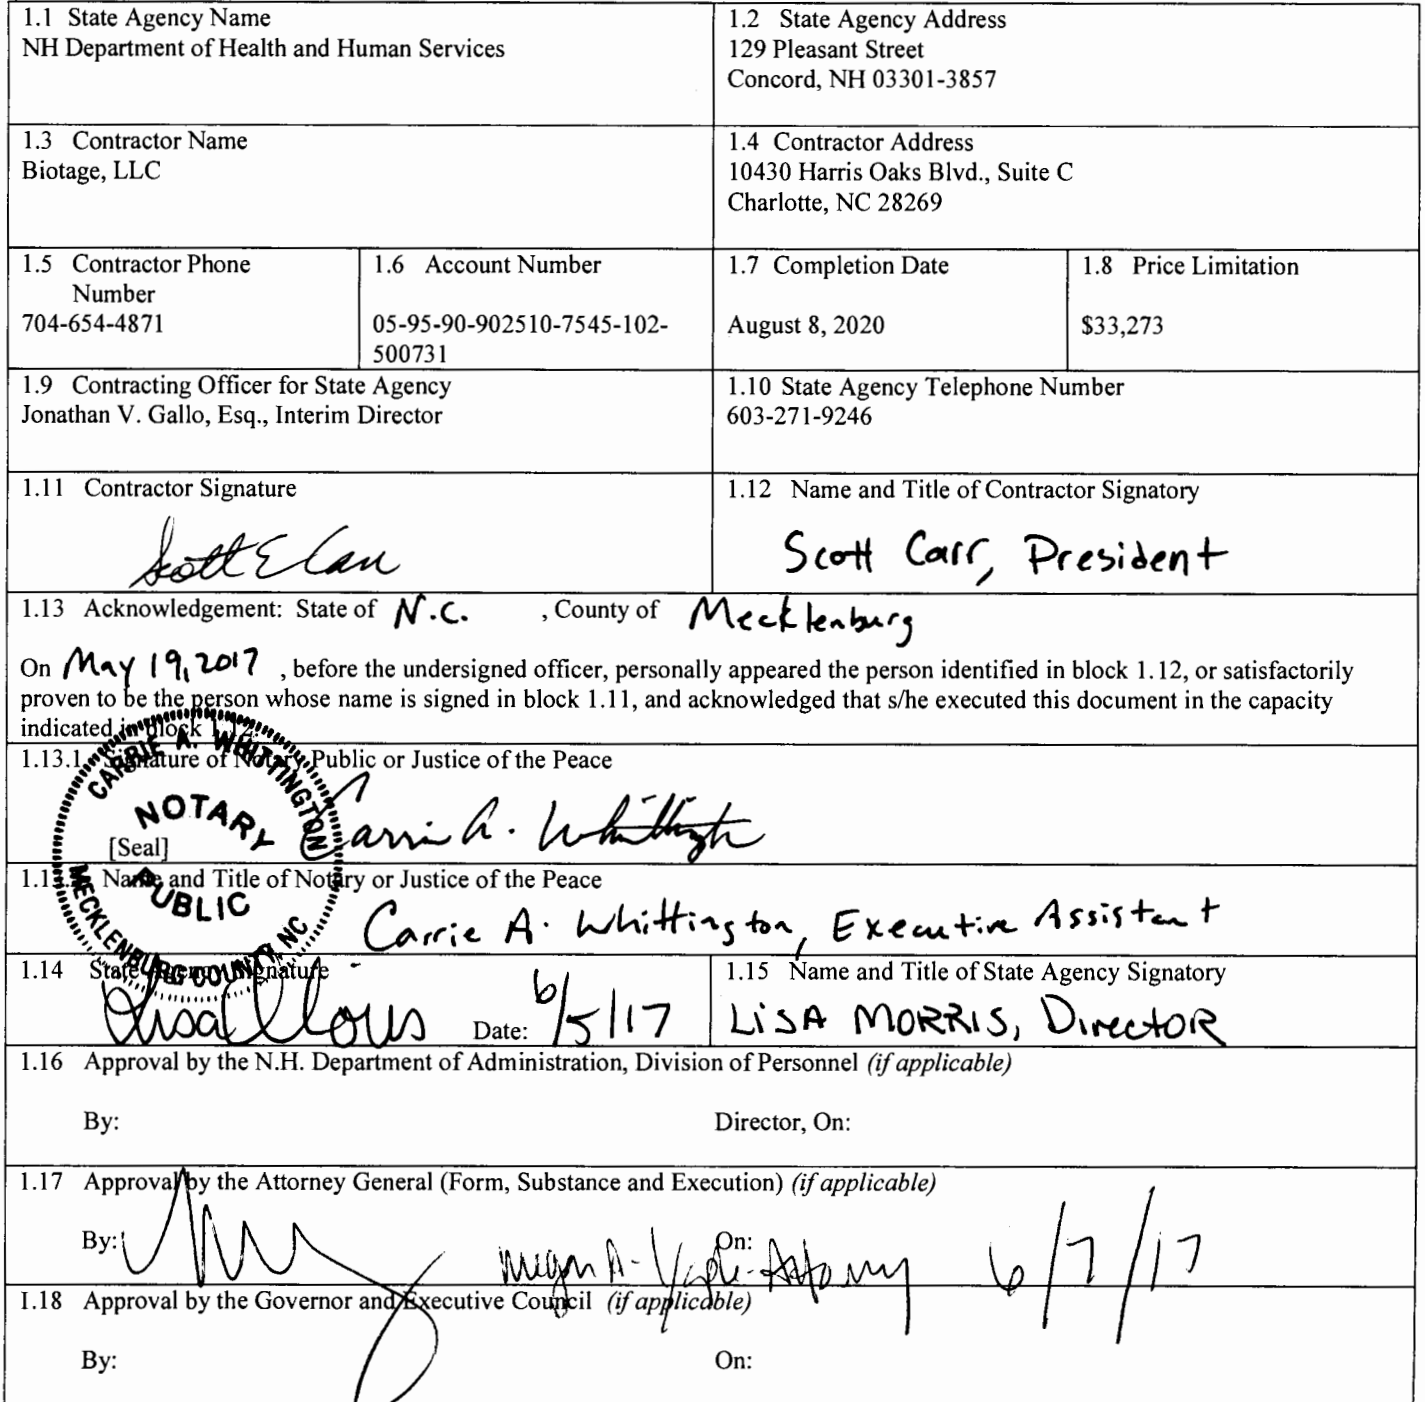 1.1 State Agency Name
NH Department of Health and Human Services
1.2 State Agency Address
129 Pleasant Street
Concord, NH 03301-3857
1.3 Contractor Name
Biotage, LLC
1.4 Contractor Address
10430 Harris Oaks Blvd., Suite C
Charlotte, NC 28269
1.5 Contractor Phone
Number
704-654-4871
1.6 Account Number
05-95-90-902510-7545-102-
500731
1.7 Completion Date
August 8, 2020
1.8 Price Limitation
$33,273
1.9 Contracting Officer for State Agency
Jonathan V. Gallo, Esq., Interim Director
1.10 State Agency Telephone Number
603-271-9246
1.11 Contractor Signature
Scott E Carr
1.12 Name and Title of Contractor Signatory
Scott Carr, President
1.13 Acknowledgement: State of N.C. , County of Mecklenburg
On May 19, 2017 , before the undersigned officer, personally appeared the person identified in block 1.12, or satisfactorily
proven to be the person whose name is signed in block 1.11, and acknowledged that s/he executed this document in the capacity
indicated in block 1.12.
1.13.1 Signature of Notary Public or Justice of the Peace
CARRIE A. WHITTINGTON
NOTARY
PUBLIC
MECKLENBURG COUNTY, NC
[Seal]
Carrie A. Whittington
Name and Title of Notary or Justice of the Peace
Carrie A. Whittington, Executive Assistant
1.14 State Agency Signature
Date: 6/5/17
1.15 Name and Title of State Agency Signatory
LiSA MORRIS, DirectoR
1.16 Approval by the N.H. Department of Administration, Division of Personnel (if applicable)
By:
Director, On:
1.17 Approval by the Attorney General (Form, Substance and Execution) (if applicable)
By:
Megan A. - Attorney
On: 6/7/17
1.18 Approval by the Governor and Executive Council (if applicable)
By:
On: